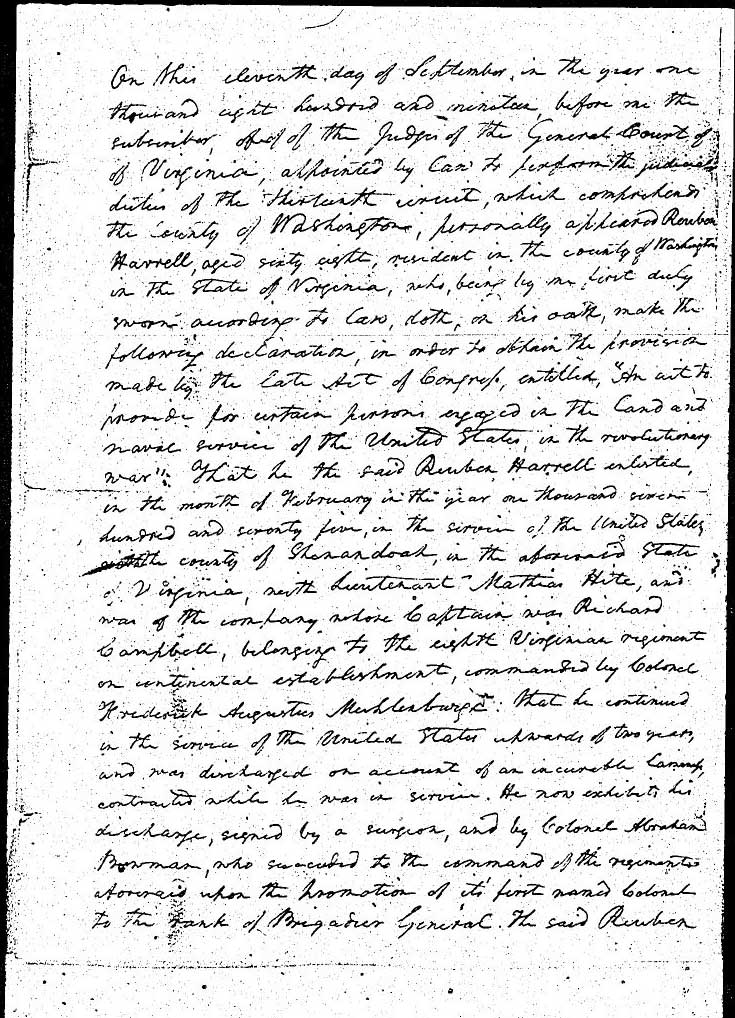 On this eleventh day of September, in the year one
thousand eight hundred and nineteen, before me the
subscriber, of the Judges of the General Court of
of Virginia, appointed by Law to perform the judicial
duties of the thirteenth circuit, which comprehends
the County of Washington, personally appeared Reuben
Harrell, aged sixty eight, resident in the county of Washington
in the State of Virginia, who, being by me first duly
sworn according to Law, doth, on his oath, make the
following declaration, in order to obtain the provision
made by the Late Act of Congress, entitled, "An act to
provide for certain persons engaged in the Land and
naval service of the United States, in the revolutionary
war": That he the said Reuben Harrell enlisted,
in the month of February in the year one thousand seven
hundred and seventy five, in the service of the United States
the county of Shenandoah, in the aforesaid State
of Virginia, with Lieutenant Mathias Hite, and
was of the company whose Captain was Richard
Campbell, belonging to the eighth Virginian regiment
on continental establishment, commanded by Colonel
Frederick Augustus Muhlenburgh: that he continued
in the service of the United States upwards of two years,
and was discharged on account of an incurable Lameness,
contracted while he was in service. He now exhibits his
discharge, signed by a surgeon, and by Colonel Abraham
Bowman, who succeeded to the command of the regiment
aforesaid upon the promotion of its first named Colonel
to the rank of Brigadier General. The said Reuben